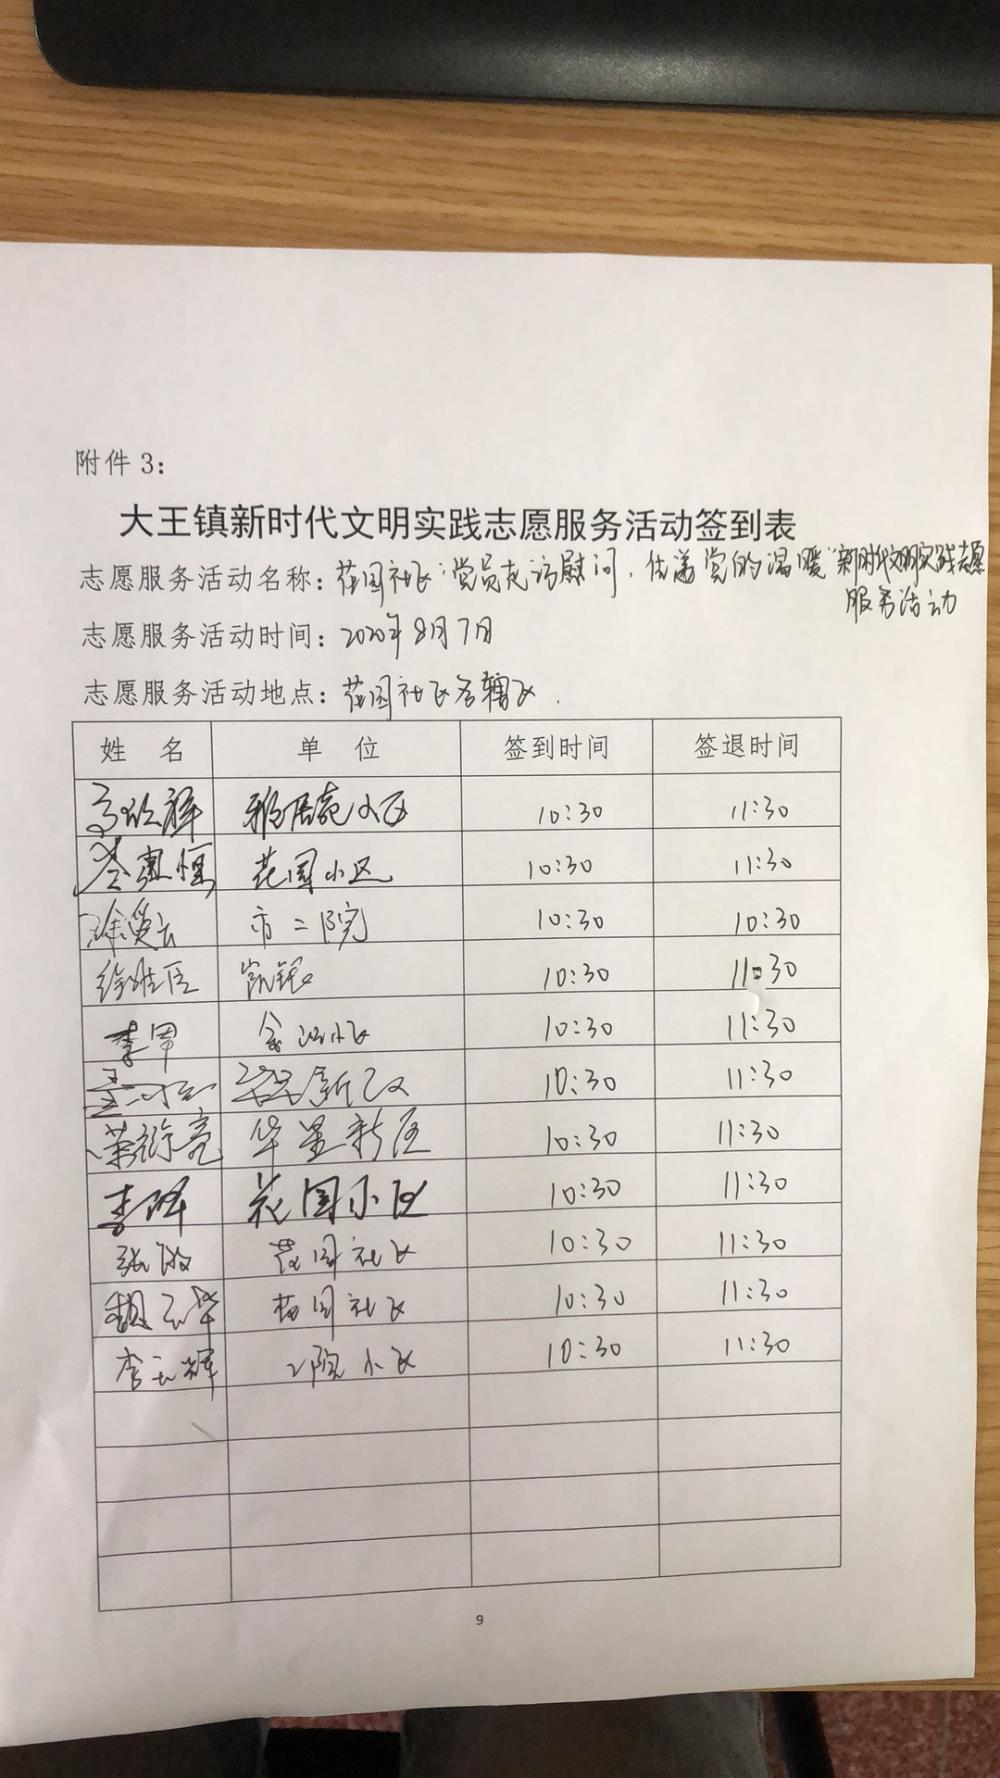 附件 3：
大王镇新时代文明实践志愿服务活动签到表
志愿服务活动名称：花园社区"党员走访慰问，传递党的温暖"新时代文明实践志愿
服务活动
志愿服务活动时间：2020年8月7日
志愿服务活动地点：花园社区各辖区.
姓 名 单 位 签到时间 签退时间
雅居苑小区 10:30 11:30
花园小区 10:30 11:30
市二院 10:30 10:30
徐胜臣 凯银 10:30 11:30
李军 10:30 11:30
新区 10:30 11:30
荣衍亮 华星新区 10:30 11:30
李峰 花园小区 10:30 11:30
张敏 花园社区 10:30 11:30
魏云华 花园社区 10:30 11:30
李玉辉 二院小区 10:30 11:30
9